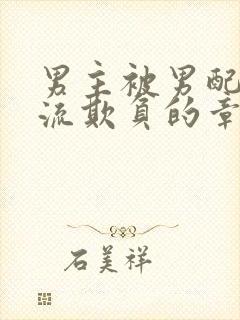 男主被男配
流欺负的章
石美祥